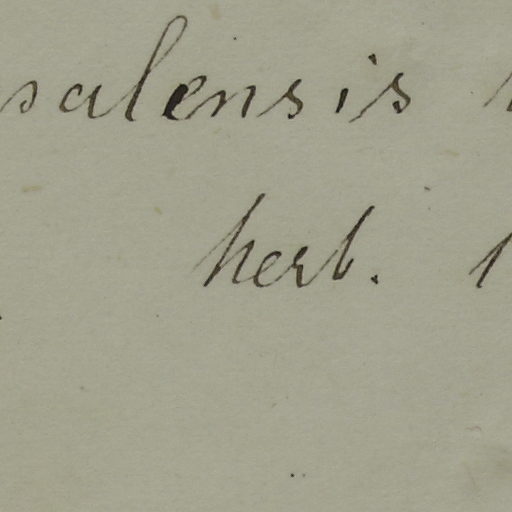 salensis
herb. 1